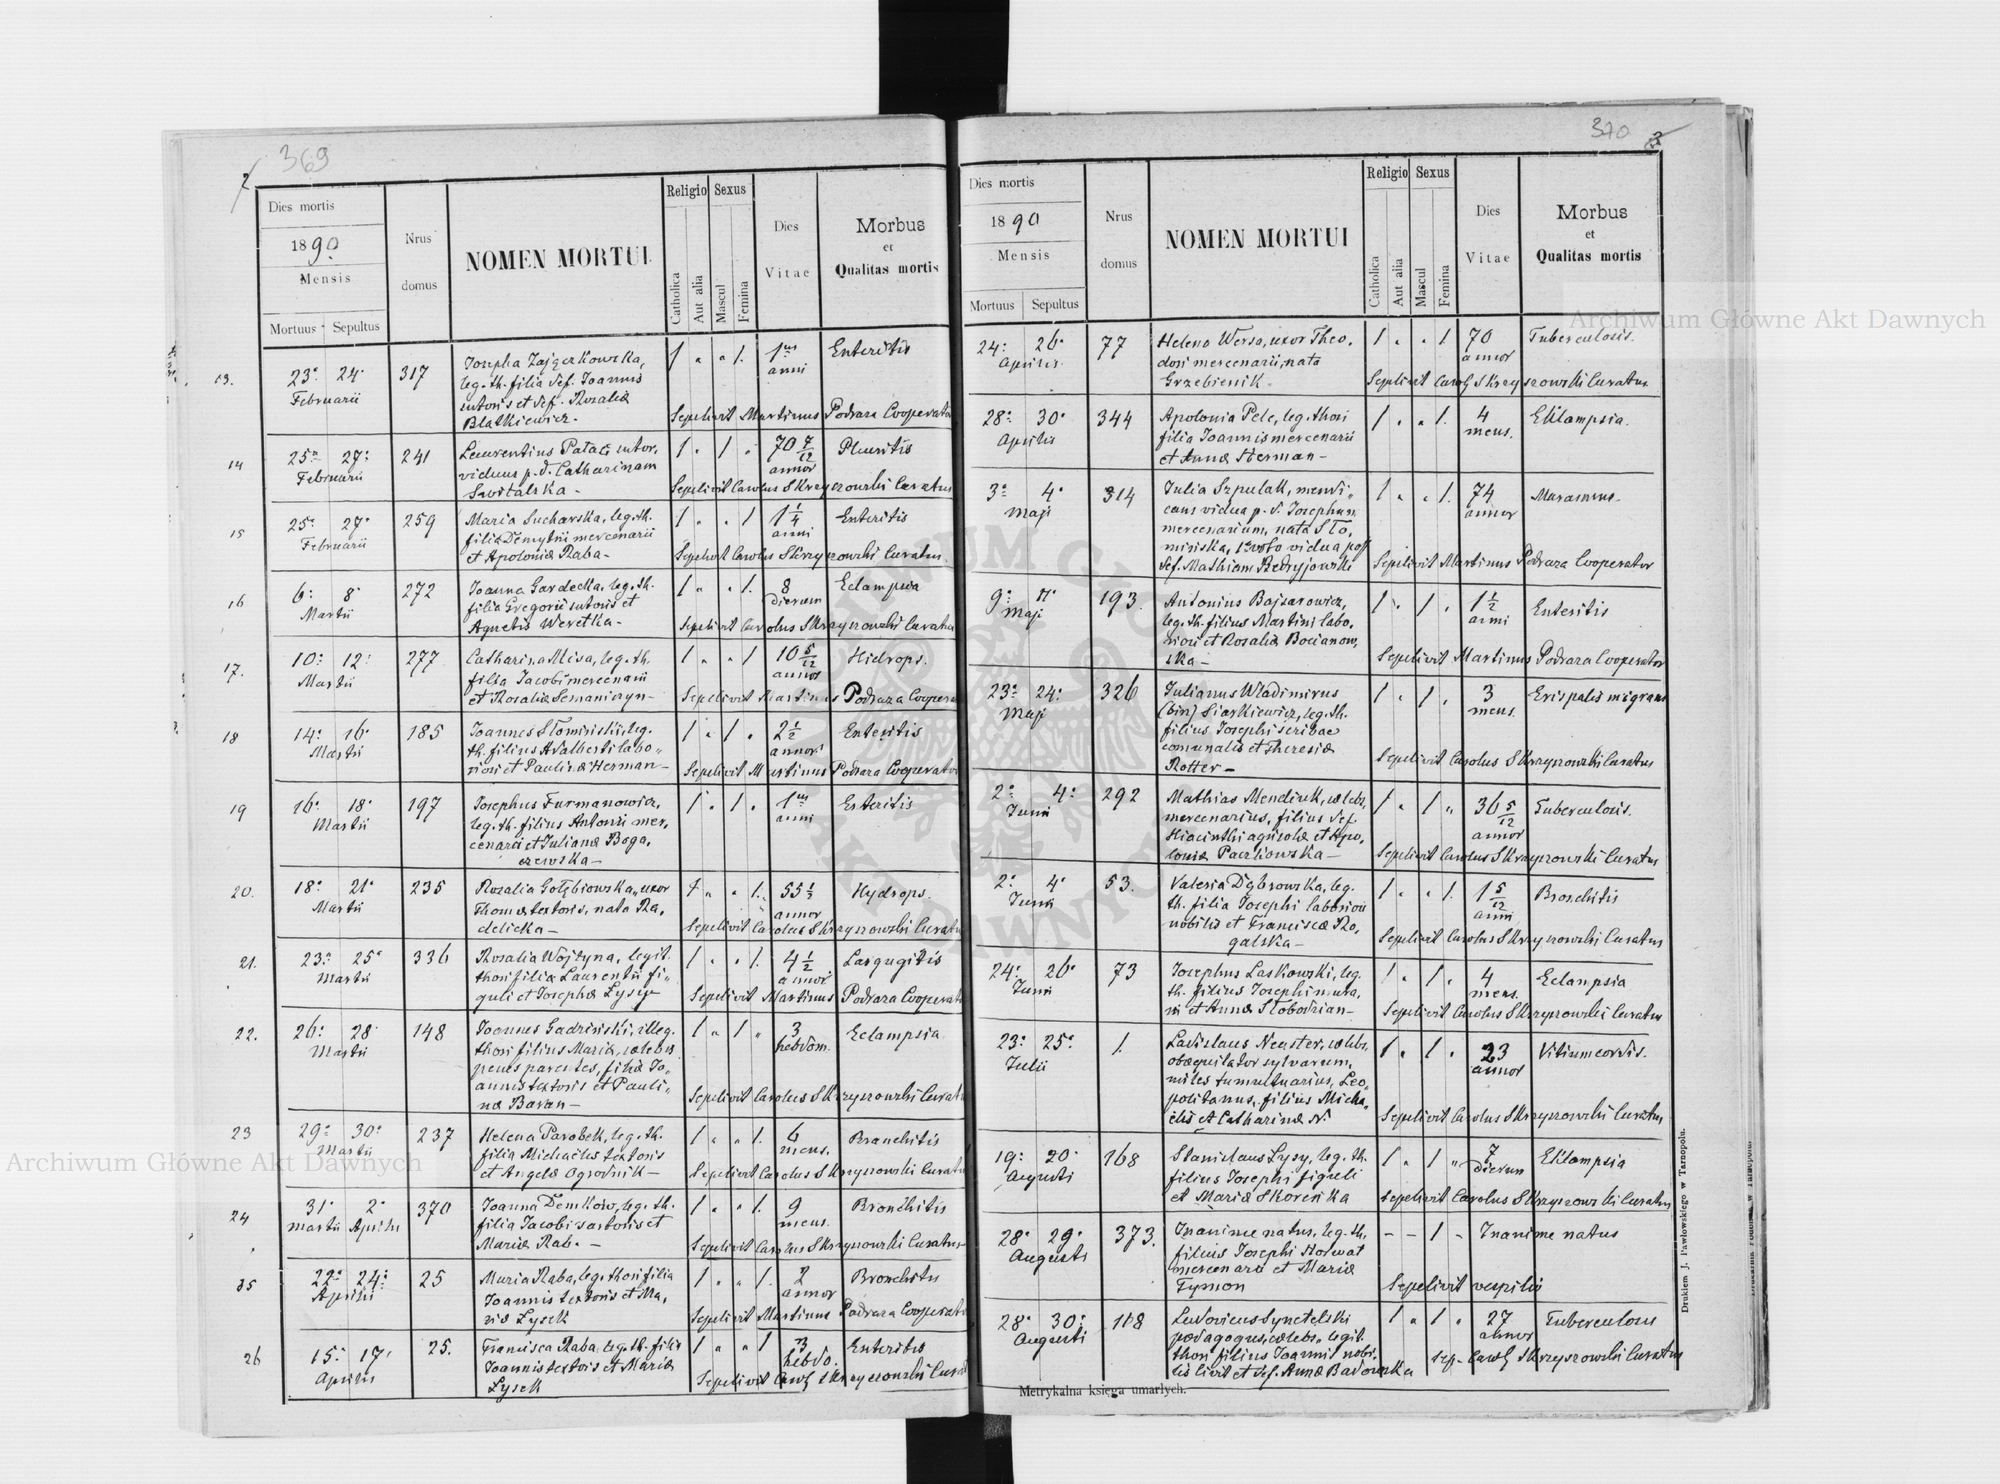 369
2
Dies mortis
1890
Mensis
Mortuus Sepultus
Nrus domus
NOMEN MORTUI
Religio
Catholica
Aut alia
Sexus
Mascul
Femina
Dies Vitae
Morbus
et
Qualitas mortis
13. 23. 24. Februarii 317
leg. th. filia def. Joannis
sutoris et def. Rosalia
Blatkiewicz
1 " " 1. 1us anni Enteritis
Sepelivit Martinus Podraza Cooperator
14 25. 27. Februarii 241
viduus p. d. Catharinam
1 " 1 " 70 annor Pleuritis
Sepelivit Carolus Skrzyszowski Curatus
15 25. 27. Februarii 259
Maria Sucharska, leg. th.
filia Demytrii mercenarii
et Apolonia Raba
1 " " 1 1 1/4 anni Enteritis
Sepelivit Carolus Skrzyszowski Curatus
16 6. 8. Martii 272
Joanna Gardecka, leg. th.
filia Gregorii sutoris et
Agnetis Weretka
1 " " 1. 8 dierum Eclampsia
Sepelivit Carolus Skrzyszowski Curatus
17. 10. 12. Martii 277
Catharina Misa, leg. th.
filia Jacobi mercenarii
et Rosalia
1 " " 1 10 5/12 annor Hidrops.
Sepelivit Martinus Podraza Cooperator
18 14. 16. Martii 185
th. filius Adalberti labo,
riosi et Paulina Herman
1 " 1 " 2 1/2 annor Enteritis
Sepelivit Martinus Podraza Cooperator
19 16. 18. Martii 197
Josephus Furmanowicz,
leg. th. filius Antonii mer,
cenarii et Juliana Boga,
czewska
1 " 1 " 1us anni Enteritis
20. 18. 21. Martii 235
Rozalia Gołębiowska, uxor
Thoma textoris, nata Ra,
delicka
1 " " 1. 55 1/2 annor Hydrops.
Sepelivit Carolus Skrzyszowski Curatus
21. 23. 25. Martii 336
Rosalia Wojtyna, legit.
thori filia Laurentii fi,
guli et Josepha Lysy
1 " " 1. 4 1/2 annor
Sepelivit Martinus Podraza Cooperator
22. 26. 28. Martii 148
Joannes Gadziński, illeg.
thori filius Maria, cœlebis
penes parentes, filia Jo,
annis textoris et Pauli,
na Baran
1 " 1 " 3 hebdom. Eclampsia
Sepelivit Carolus Skrzyszowski Curatus
23 29. 30. Martii 237
Helena Parobek, leg. th.
filia Michaelis textoris
et Angela Ogrodnik
1 " " 1. 6 mens. Branchitis
Sepelivit Carolus Skrzyszowski Curatus
24 31. Martii 2. Aprilis 370
Joanna Demków, leg. th.
filia Jacobi sartoris et
Maria Rab.
1 " " 1. 9 mens. Bronchitis
Sepelivit Carolus Skrzyszowski Curatus
25 22. 24. Aprilis 25
Maria Raba, leg. thori filia
Joannis textoris et Ma,
ria Lysek
1 " " 1. 2 annor Bronchitis
Sepelivit Martinus Podraza Cooperator
26 15. 17. Aprilis 25.
Francisca Raba leg. th. filia
Joannis textoris et Maria
Lysek
1 " " 1 3 hebdo. Enteritis
Sepelivit Carolus Skrzyszowski Curatus
370
3
Dies mortis
1890
Mensis
Mortuus Sepultus
Nrus domus
NOMEN MORTUI
Religio
Catholica
Aut alia
Sexus
Mascul
Femina
Dies Vitae
Morbus
et
Qualitas mortis
24. 26. Aprilis 77
Helena Wersa, uxor Theo,
dori mercenarii, nata
Grzebienik
1 " " 1 70 annor Tuberculosis.
Sepelivit Skrzyszowski Curatus
28. 30. Aprilis 344
Apolonia Pelc, leg. thori
filia Joannis mercenarii
et Anna Herman
1 " " 1. 4 mens. Eklampsia.
3. 4. Maji 314
Julia Szpulak, mendi,
cans vidua p. d. Josephum
mercenarium, nata Sło,
mińska, 1o voto vidua post
def. Mathiam
1 " " 1. 74 annor
Sepelivit Martinus Podraza Cooperator
9. 11. Maji 193.
Antonius Bajsarowicz,
leg. th. filius Martini labo,
riosi et Rosalia Bocianow,
ska
1 " 1 " 1 1/2 anni Enteritis
Sepelivit Martinus Podraza Cooperator
23. 24. Maji 326
Julianus Wladimirus
(bin) Siarkiewicz, leg. th.
filius Josephi scribae
comunalis et Theresia
Rotter
1 " 1 " 3 mens. Erispelis migrans
Sepelivit Carolus Skrzyszowski Curatus
2. 4. Junii 292
Mathias Mendiuk, cœlebs,
mercenarius, filius def.
Hiacinthi agricola et Apo,
lonia Paczkowska
1 " 1 " 36 5/12 annor Tuberculosis.
Sepelivit Carolus Skrzyszowski Curatus
2. 4. Junii 53.
Valeria Dąbrowska, leg.
th. filia Josephi laboriosi
nobilis et Francisca Ro,
galska
1 " " 1. 1 5/12 anni Bronchitis
Sepelivit Carolus Skrzyszowski Curatus
24. 26. Junii 73
Josephus Laskowski, leg.
th. filius Josephi mura,
rii et Anna Słobodzian
1 " 1 " 4 mens. Eclampsia
Sepelivit Carolus Skrzyszowski Curatus
23. 25. Julii 1.
Ladislaus Neuster, cœlebs,
obæquitator sylvarum,
miles tumultuarius, Leo,
politanus, filius Micha,
elis et Catharina N.
1 " 1 " 23 annor Vitium cordis.
Sepelivit Carolus Skrzyszowski Curatus
19. 20. Augusti 168
Stanislaus Lysy, leg. th.
filius Josephi figuli
et Maria Skoreńka
1 " 1 " 7 dierum Eklampsia
Sepelivit Carolus Skrzyszowski Curatus
28. 29. Augusti 373.
Inanime natus, leg. th.
filius Josephi Horwat
mercenarii et Maria
Tymon
- - 1 - Inanime natus
Sepelivit vespilio
28. 30. Augusti 118
Ludovicus Synetelski
pædagogus, cœlebs, legit.
thori filius Joannis nobi,
lis et def. Anna Badowska
1 " 1 " 27 annor Tuberculosis
Sep. Skrzyszowski Curatus
Metrykalna księga umarłych.
Drukiem J. Pawłowskiego w Tarnopolu.
Archiwum Główne Akt Dawnych
Archiwum Główne Akt Dawnych